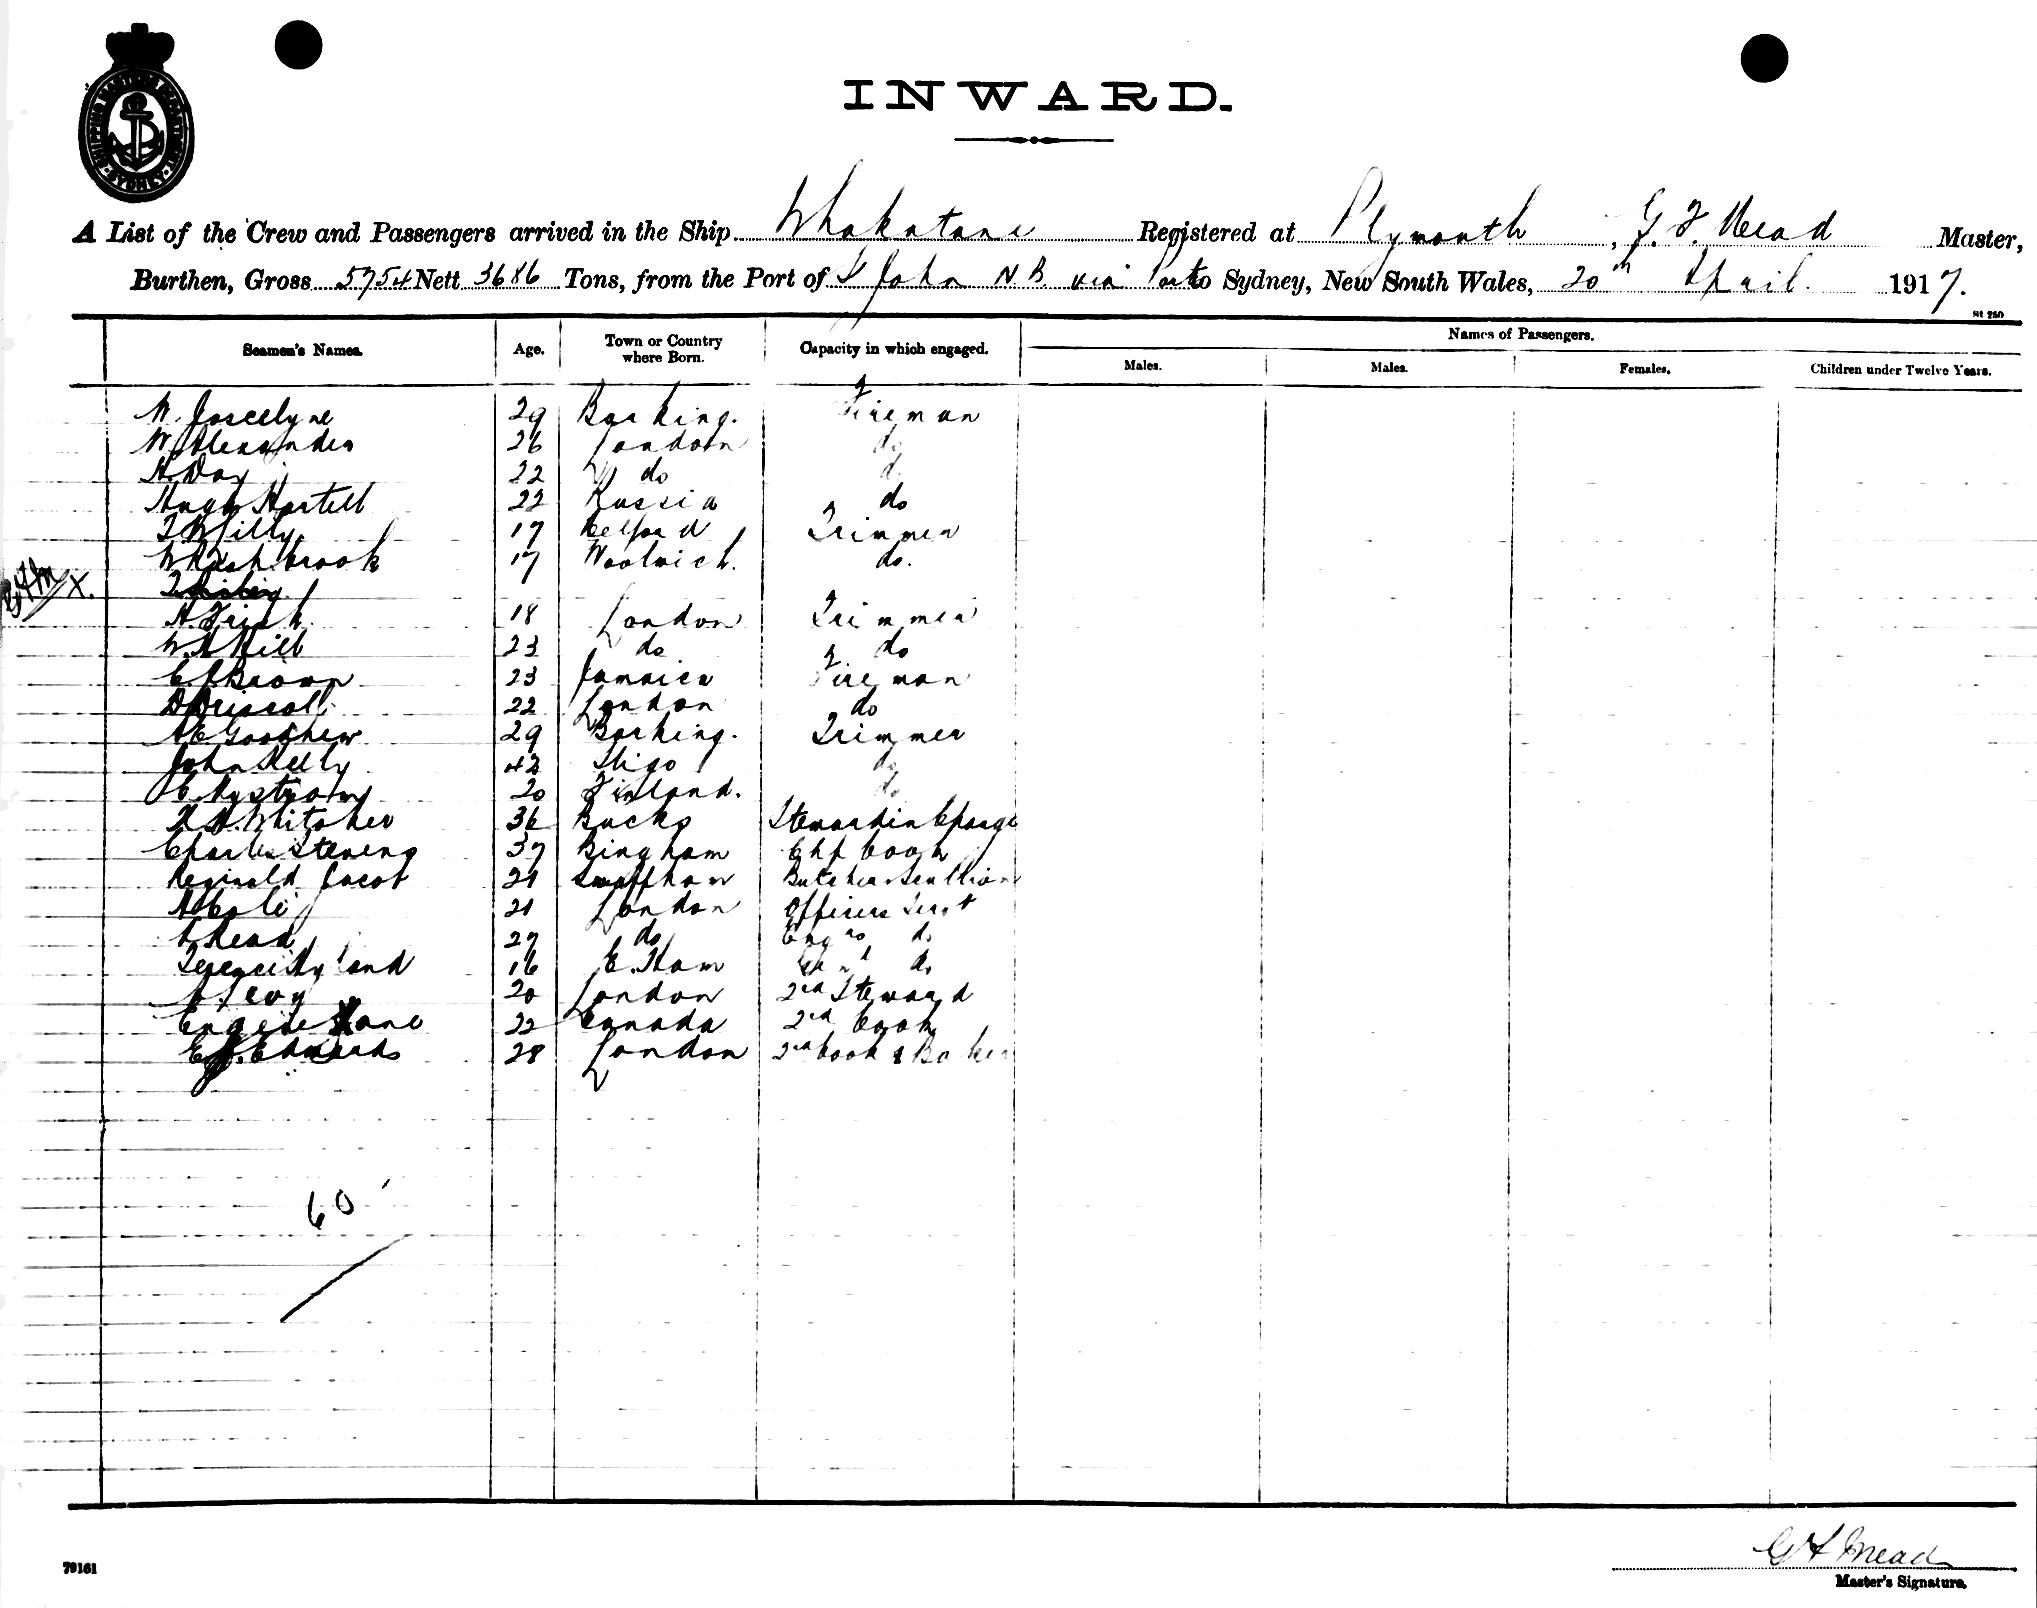 SHIPPING MASTERS DEPARTMENT
SYDNEY
INWARD.
A List of the Crew and Passengers arrived in the Ship Whakatane Registered at Plymouth, G. F. Mead Master,
Burthen, Gross 5754 Nett 3686 Tons, from the Port of St John N B via Ports to Sydney, New South Wales, 20th April. 1917.
St 250
Seamen's Names. Age. Town or Country where Born. Capacity in which engaged. Names of Passengers.
Males. Males. Females. Children under Twelve Years.
W. Joscelyne 29 Barking. Fireman
W. Alexander 26 London do
H. Day 22 do do
Hugh Hartell 22 Russia do
17 Belford Trimmer
W 17 Woolwich. do.
X.
H. Frish 18 London Trimmer
W. H Hill 23 do do
C J Brown 23 Jamaica Fireman
D Driscoll 22 London do
A E Goodhew 29 Barking. Trimmer
John Kelly 42 Sligo do
C. Nystrom 20 Finland. do
H. Whitaker 36 Bucks Steward in Charge
Charles Stevens 37 Bingham Chf Cook
Reginald Jacob 21 Swaffham Butcher & Scullion
A Cole 21 London Officers Servt
Read 27 do Engrs do
land 16 E. Ham do
Levy 20 London 2nd Steward
Eugene Kane 22 Canada 2nd Cook
E. J. Edwards 28 London 2nd Cook & Baker
60
G F Mead
Master's Signature.
79161